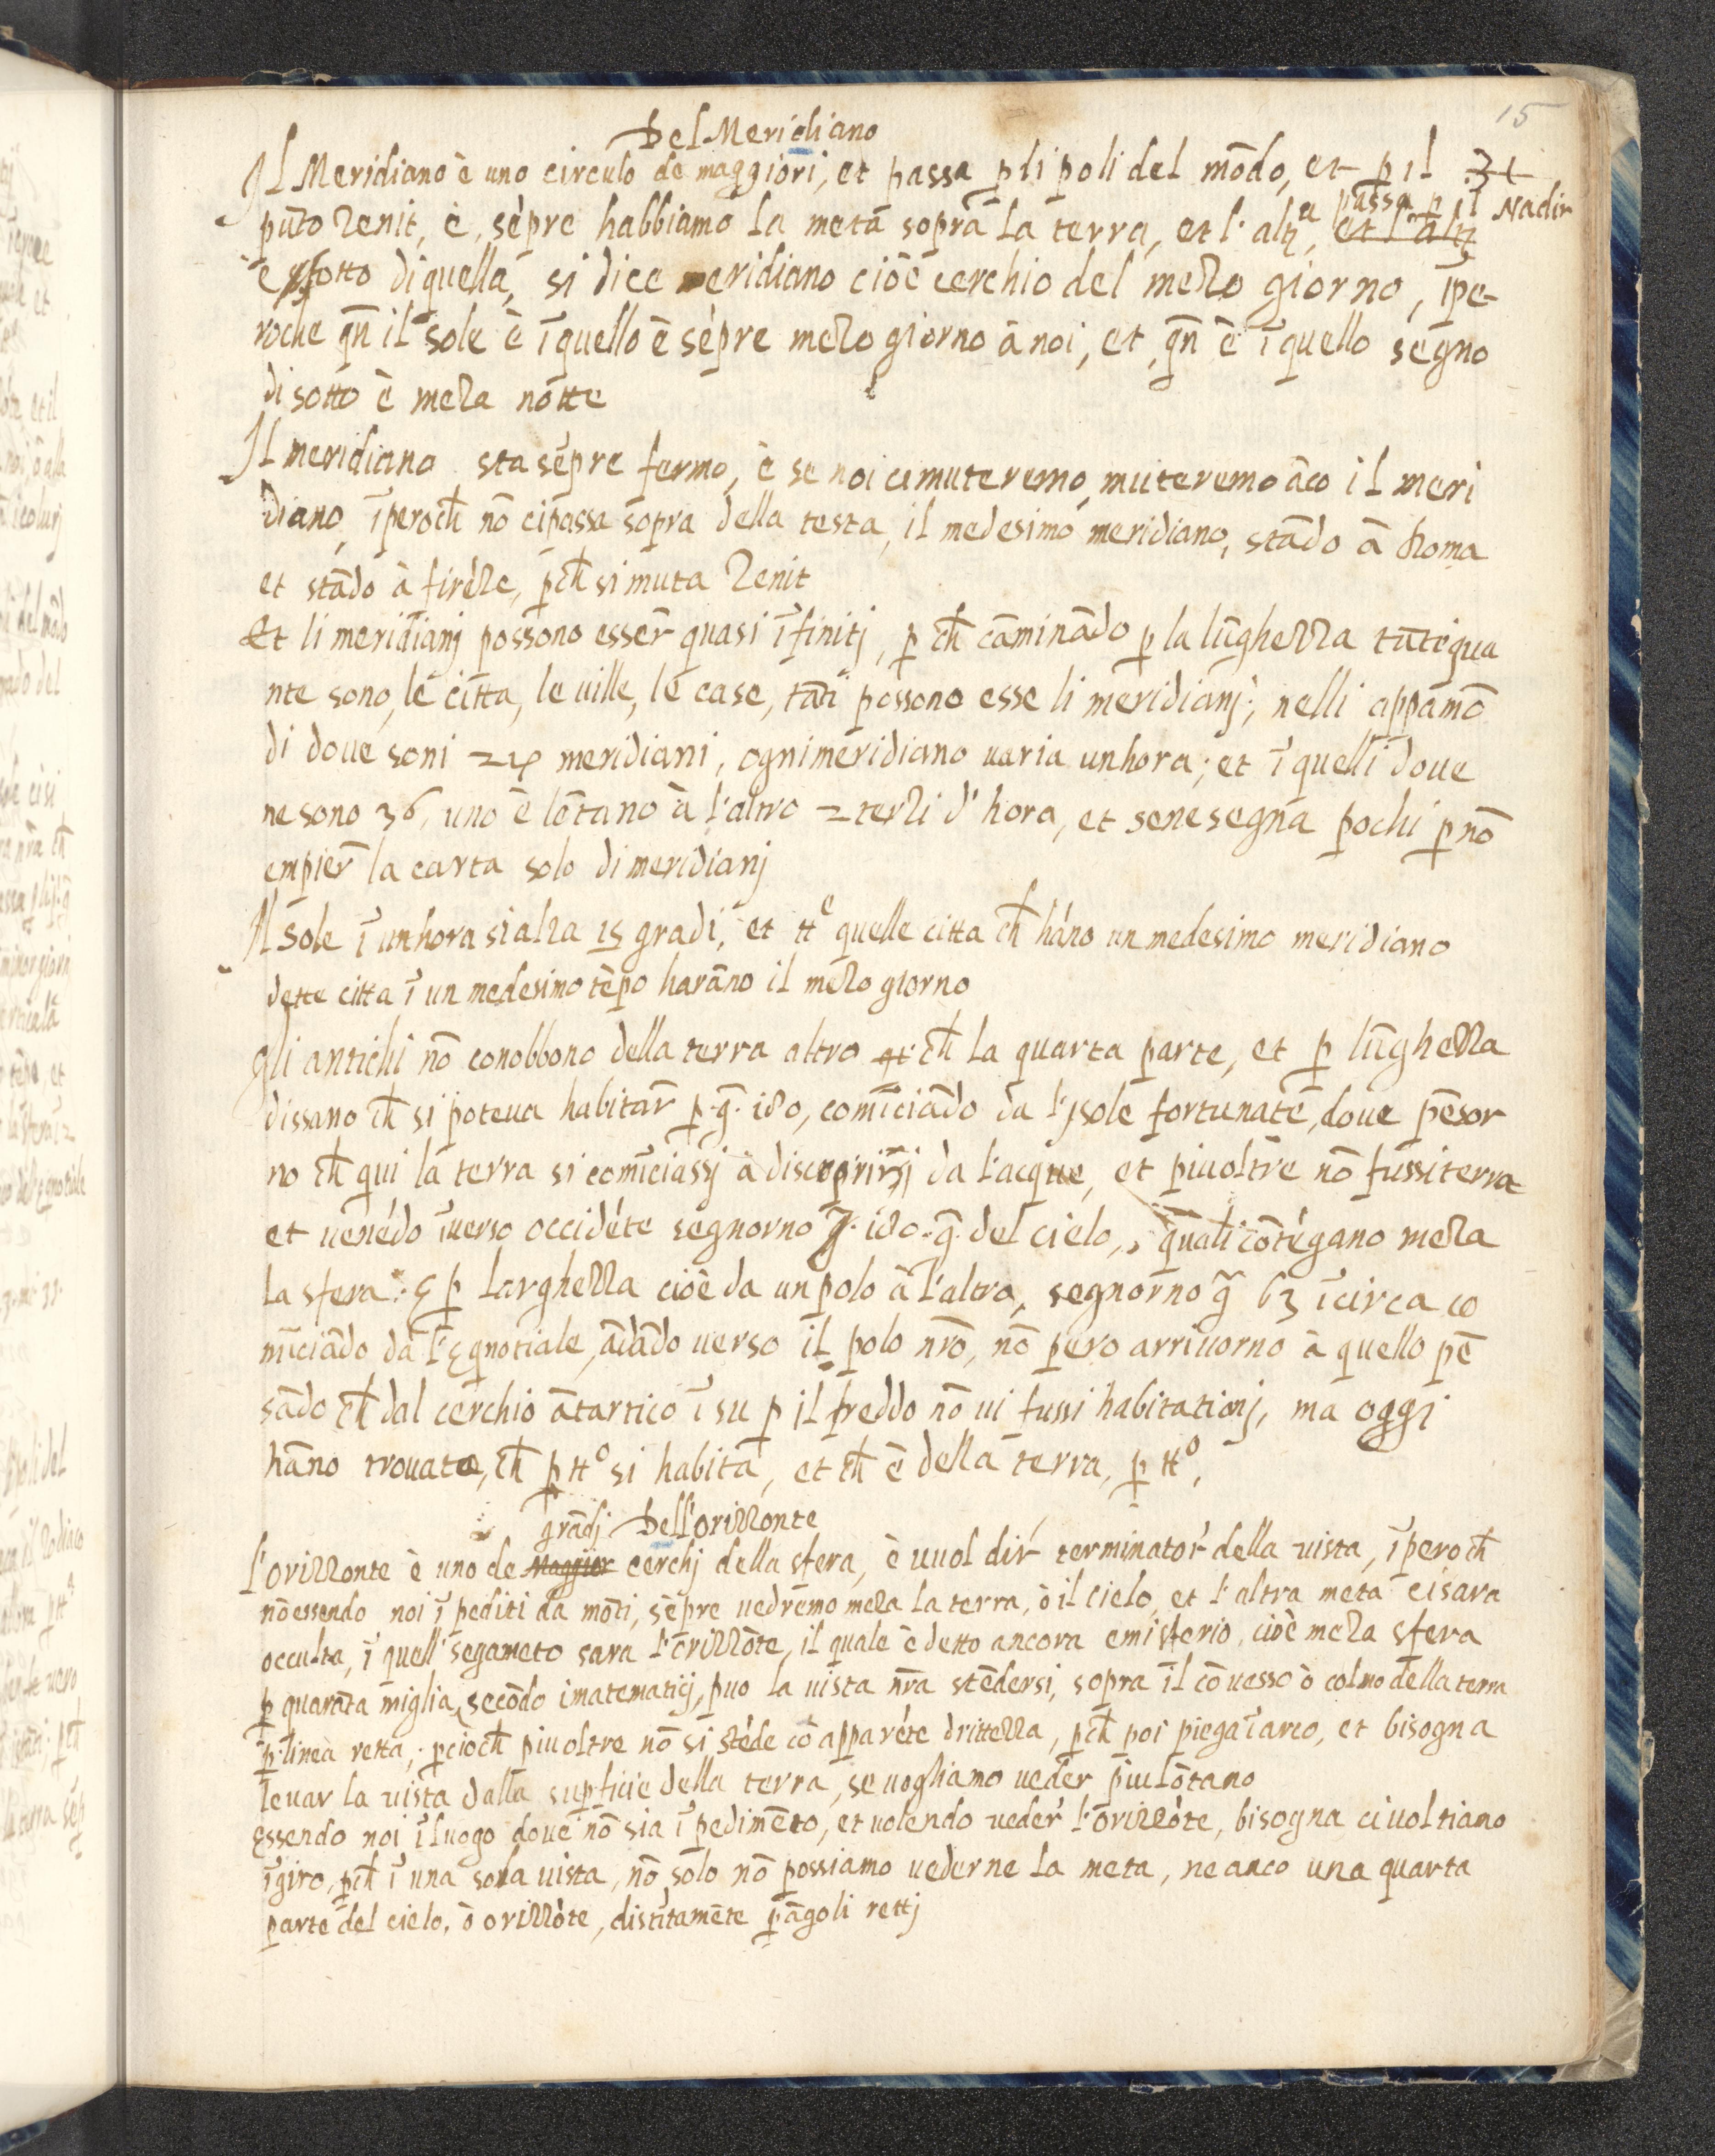 15
Del Meridiano
Il Meridiano è uno circulo de maggiori, et passa p̱ li poli del mōdo, et p̱ il
pūto Zenit, è, sēpre habbiamo la metà sopra la terra, et l'altra, passa p̱ il Nadir
è sotto di quella, si dice meridiano cioè cerchio del mezo giorno, īpe
roche qn̄ il sole è ī quello è sēpre mezo giorno à noi, et qn̄ è ī quello segno
di sotto è meza notte
Il meridiano sta sēpre fermo, è se noi ci muteremo, muteremo āco il meri
diano, īperoch̄ nō ci passa sopra della testa, il medesimo meridiano, stādo à Roma
et stādo à firēze, p̱ch̄ si muta Zenit
Et li meridianj possono esser̄ quasi īfinitj, p̱ch̄ caminādo p̱ la lūghezza tāte qua
nte sono, le città, le ville, le case, tāti possono esse li meridianj; nelli appamō
di doue soni 24 meridiani, ogni meridiano uaria unhora; et ī quelli doue
ne sono 36, uno è lōtano à l'altro 2 terzi d'hora, et sene segna pochi p̱ nō
empier̄ la carta solo di meridianj
Il sole ī unhora si alza 15 gradi, et tt^e quelle citta ch̄ hāno un medesimo meridiano
dette citta ī un medesimo tēpo harāno il mezo giorno
gli antichi nō conobbono della terra altro ch̄ la quarta parte, et p̱ lūghezza
dissano ch̄ si poteua habitar̄ p̱ .g̃. 180, comīciādo da l'jsole fortunate, doue pēsor
no ch̄ qui la terra si comīciassj à discoprirsj da l'acque, et piu oltre nō fussi terra
et uenēdo īuerso occidēte segnorno .180. g̃. del cielo, quali cōtēgano meza
la sfera: & p̱ larghezza cioè da un polo à l'altro, segnorno g̃ 63 īcirca co
mīciādo da l'Eqnotiale, ādādo uerso il polo nr̄o, nō pero arriuorno à quello pē
sādo ch̄ dal cerchio ātartico ī su p̱ il freddo nō ui fussi habitationj, ma oggi
hāno trouato, ch̄ p̱ tt^o si habita, et ch̄ è della terra, p̱ tt^o.
Dell'orizzonte
l'orizzonte è uno de grādj cerchj della sfera, è vuol dir̄ terminator̄ della vista, īperoch̄
nō essendo noi īpediti da mōti, sēpre uedremo meza la terra, ò il cielo, et l'altra meta ci sara
occulta, ī quell'segamēto sara l'orizzōte, il quale è detto ancora emisferio, cioè meza sfera
p̱ quarāta miglia, secōdo i matematicj, puo la uista nr̄a stēdersi, sopra il cōuesso ò colmo della terra
p̱ linea retta; p̱cioch̄ piu oltre nō si stēde cō apparēte drittezza, p̱ch̄ poi piega ī arco, et bisogna
leuar la vista dalla sup̱ficie della terra, se uogliamo ueder piu lōtano
Essendo noi ī luogo doue nō sia īpedimēto, et uolendo ueder̄ l'orizzōte, bisogna ci uoltiano
ī giro, p̱ch̄ ī una sola uista, nō solo nō possiamo uederne la meta, ne anco una quarta
parte del cielo, ò orizzōte, distītamēte p̱ āgoli rettj